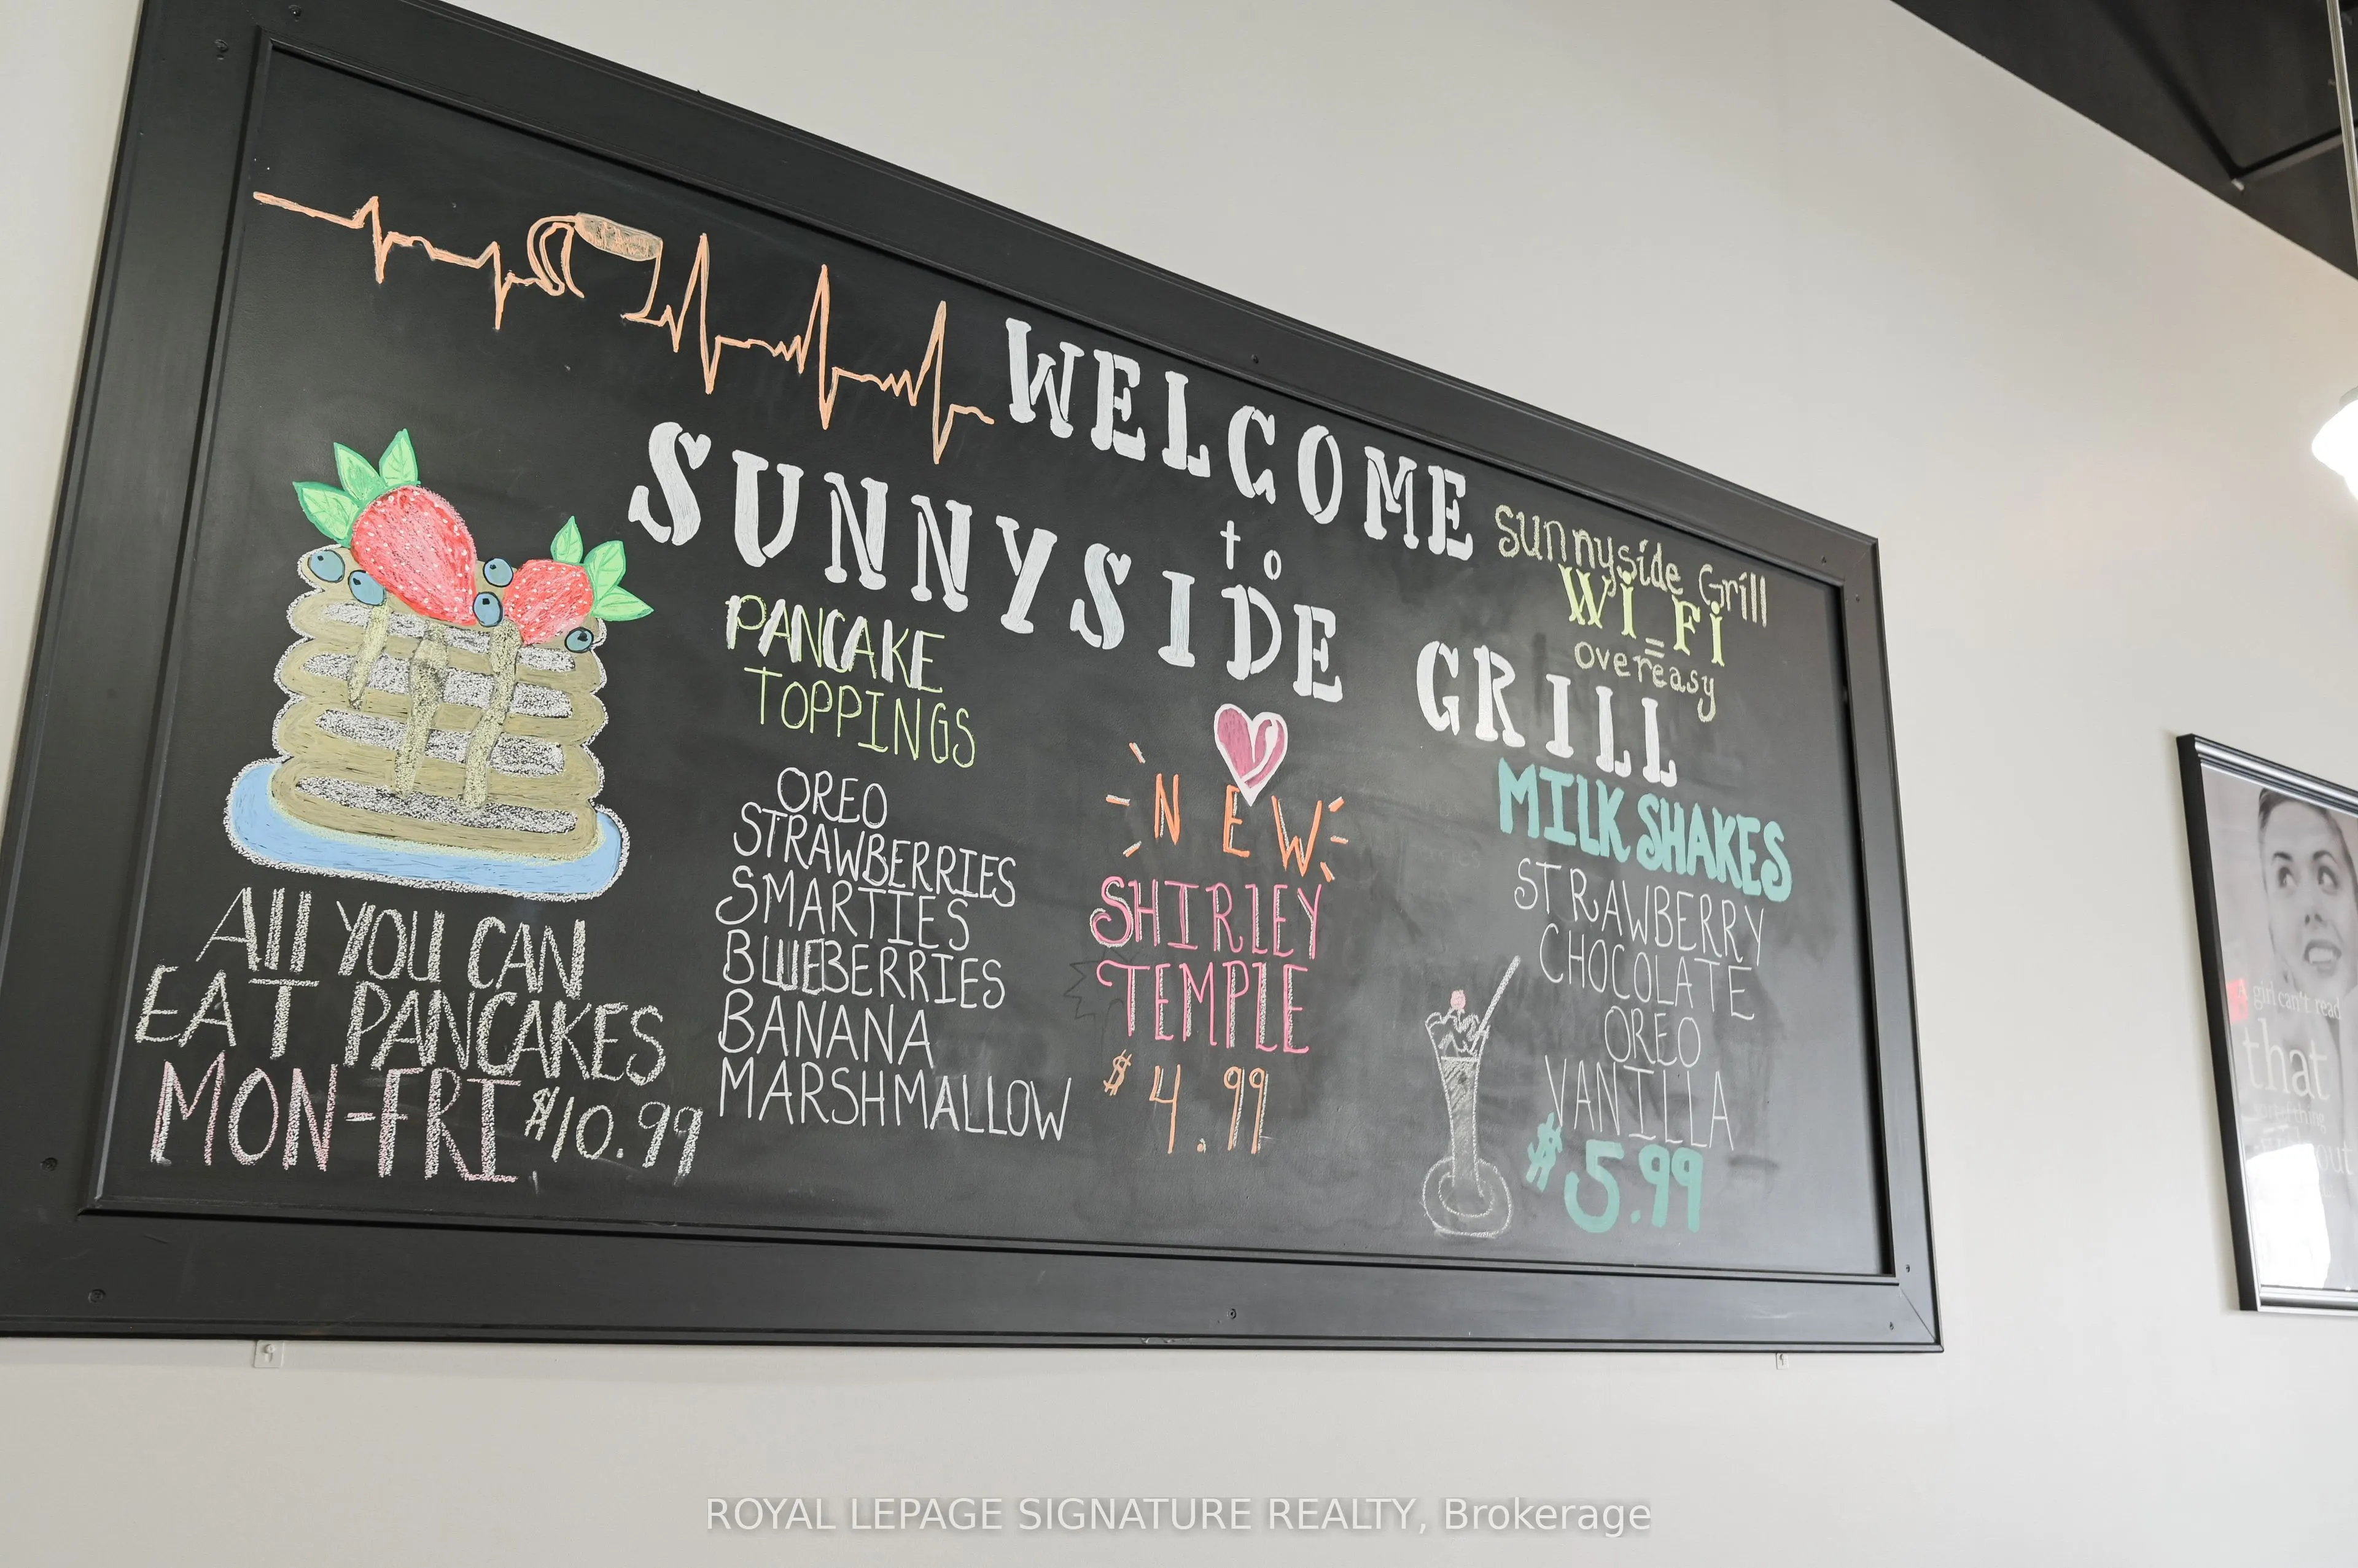 WELCOME
to
SUNNYSIDE GRILL
sunnyside Grill
Wi-Fi
=
overeasy
All YOU CAN
EAT PANCAKES
MON-FRI $10.99
PANCAKE
TOPPINGS
OREO
STRAWBERRIES
SMARTIES
BLUEBERRIES
BANANA
MARSHMALLOW
NEW
SHIRLEY
TEMPLE
$4.99
MILKSHAKES
STRAWBERRY
CHOCOLATE
OREO
VANILLA
$5.99
girl can't read
that
out
ROYAL LEPAGE SIGNATURE REALTY, Brokerage